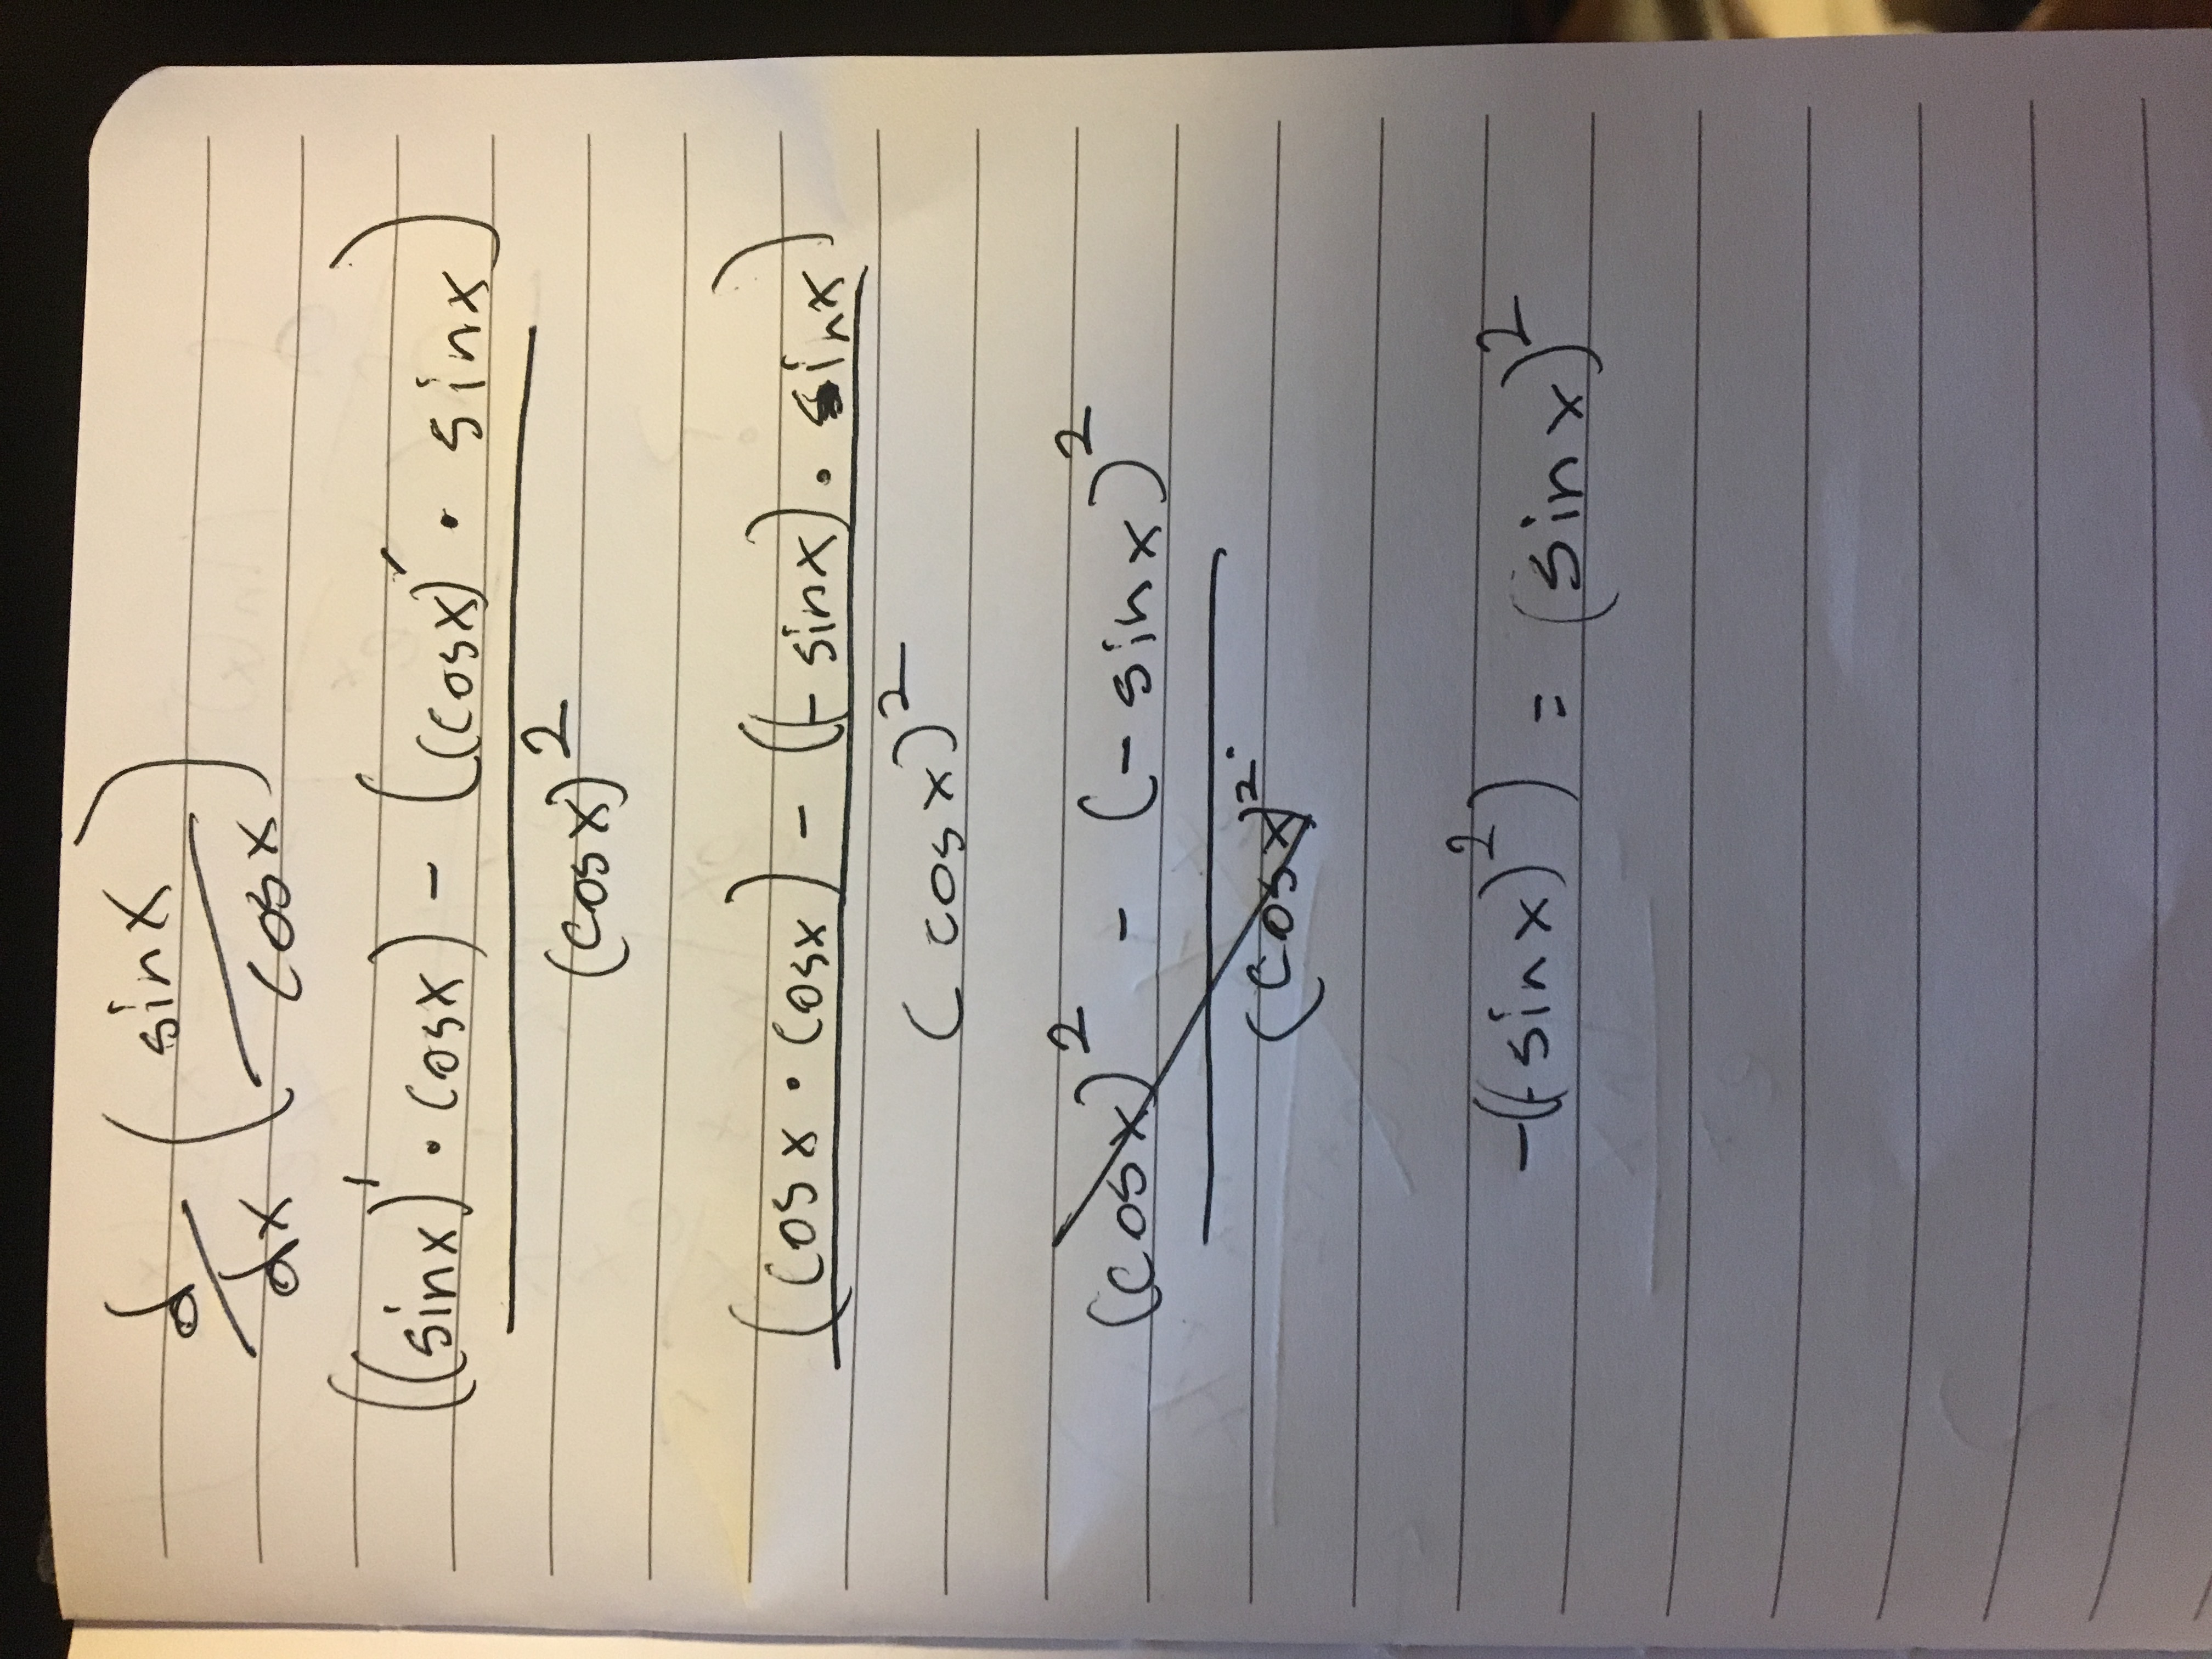 d/dx (sinx/cosx)
((sinx)' · cosx) - ((cosx)' · sinx)
(cosx)²
(cosx · cosx) - ((-sinx) · sinx)
(cosx)²
(cosx)² - (-sinx)²
(cosx)²
-((-sinx)²) = (sinx)²